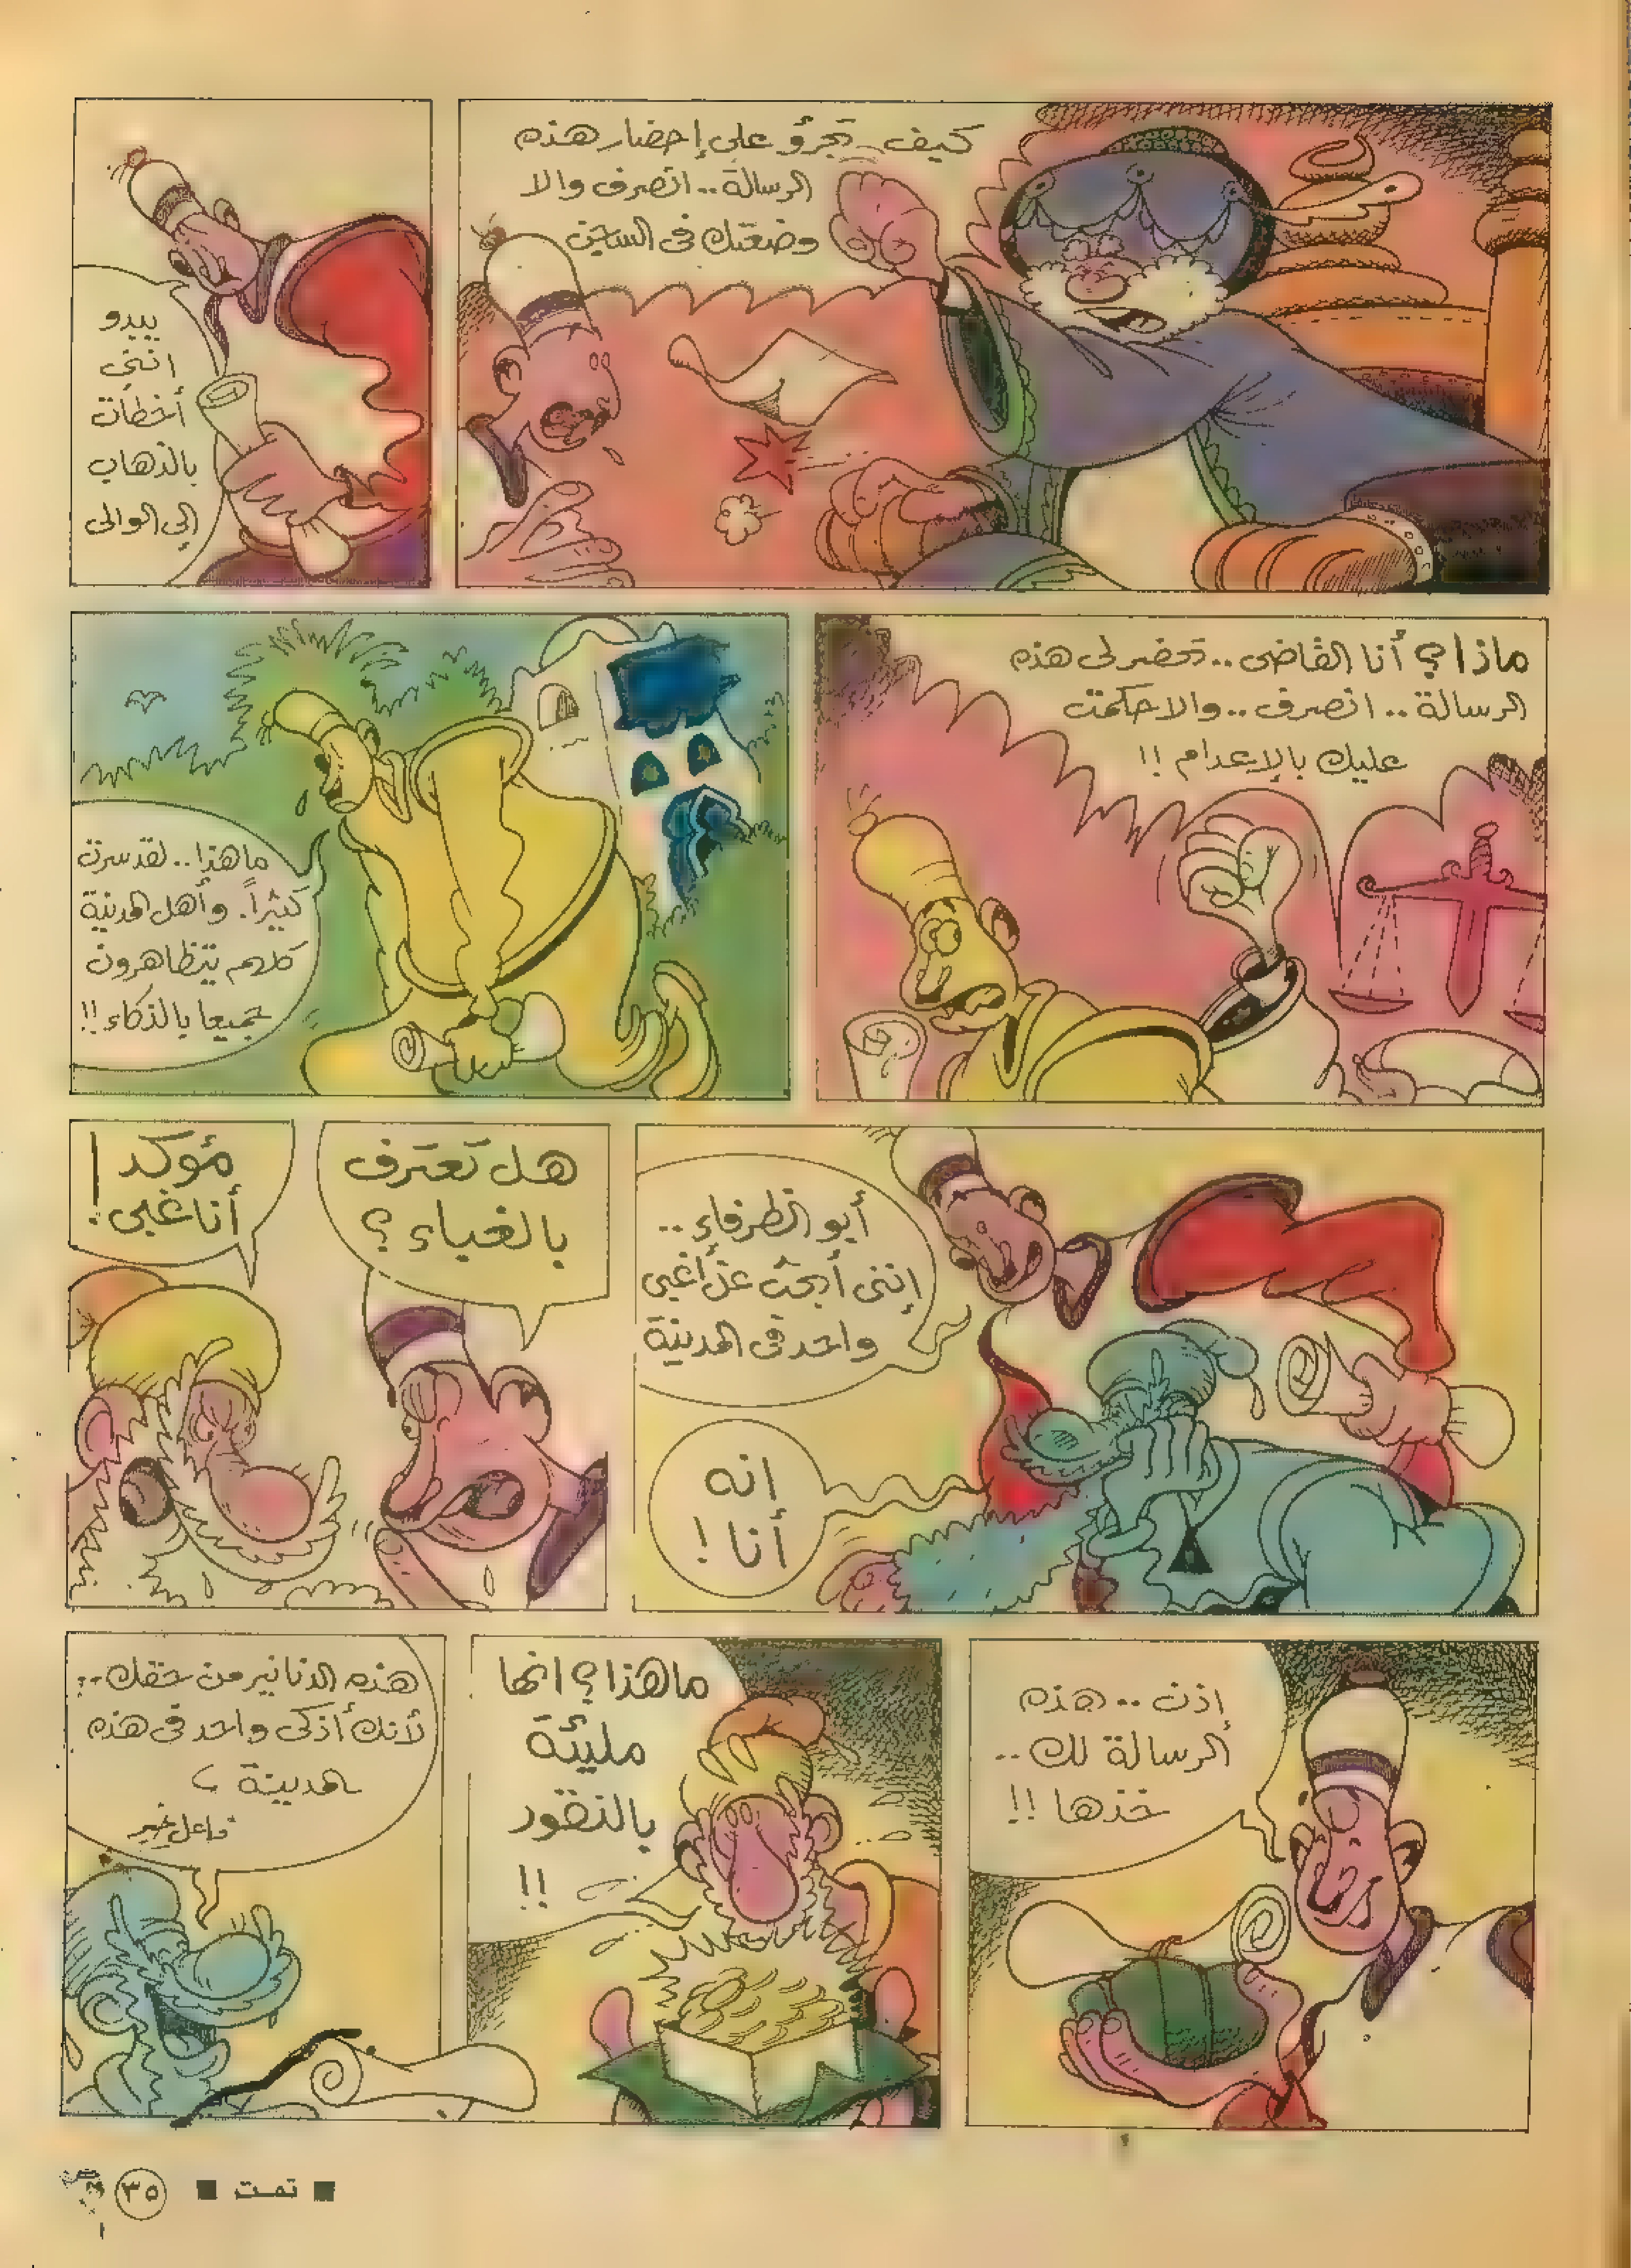 كيف تجرؤ على إحضار هذه
الرسالة .. انصرف والا
وضعتك فى السجن
يبدو
اننى
أخطأت
بالذهاب
إلى الوالى
ماذا؟ أنا القاضى .. تحضر لى هذه
الرسالة .. انصرف .. والا حكمت
عليك بالإعدام !!
ما هذا .. لقد سرت
كثيراً. وأهل المدينة
كلهم يتظاهرون
جميعا بالذكاء !!
أبو الظرفاء ..
إننى أبحث عن أغبى
واحد فى المدينة
انه
أنا !
هل تعترف
بالغباء ؟
مؤكد
أنا غبى !
اذن .. هذه
الرسالة لك ..
خذها !!
ما هذا ؟ انها
مليئة
بالنقود
!!
هذه الدنانير من حقك ..
لأنك أذكى واحد فى هذه
المدينة
فاعل خير
■ تمت ■
٣٥